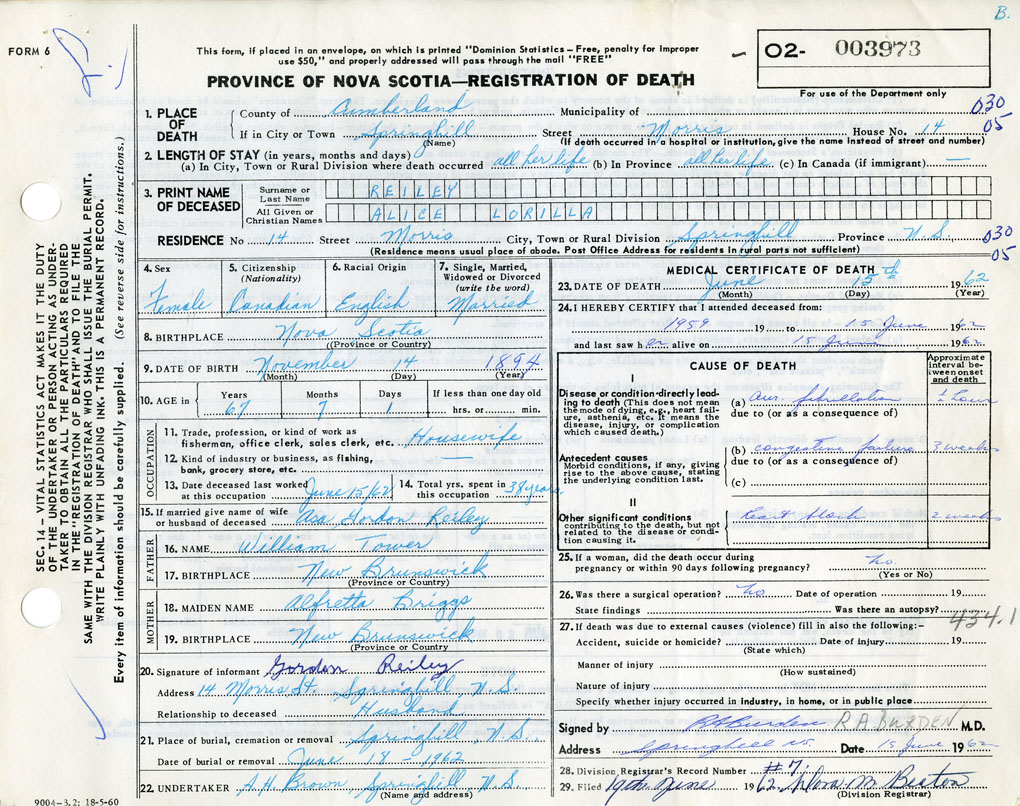 B.
FORM 6
This form, if placed in an envelope, on which is printed "Dominion Statistics – Free, penalty for improper
use $50," and properly addressed will pass through the mail "FREE"
PROVINCE OF NOVA SCOTIA—REGISTRATION OF DEATH
O2- 003973
For use of the Department only
SEC. 14 – VITAL STATISTICS ACT MAKES IT THE DUTY
OF THE UNDERTAKER OR PERSON ACTING AS UNDER-
TAKER TO OBTAIN ALL THE PARTICULARS REQUIRED
IN THE "REGISTRATION OF DEATH" AND TO FILE THE
SAME WITH THE DIVISION REGISTRAR WHO SHALL ISSUE THE BURIAL PERMIT.
WRITE PLAINLY WITH UNFADING INK. THIS IS A PERMANENT RECORD.
Every item of information should be carefully supplied. (See reverse side for instructions.)
1. PLACE OF DEATH
County of Cumberland Municipality of 030
If in City or Town Springhill Street Morris House No. 14 05
(Name) (If death occurred in a hospital or institution, give the name instead of street and number)
2. LENGTH OF STAY (in years, months and days)
(a) In City, Town or Rural Division where death occurred all her life (b) In Province all her life (c) In Canada (if immigrant) —
3. PRINT NAME OF DECEASED
Surname or Last Name REILEY
All Given or Christian Names ALICE LORILLA
RESIDENCE No 14 Street Morris City, Town or Rural Division Springhill Province N.S. 030
05
(Residence means usual place of abode. Post Office Address for residents in rural parts not sufficient)
4. Sex Female
5. Citizenship (Nationality) Canadian
6. Racial Origin English
7. Single, Married, Widowed or Divorced (write the word) Married
8. BIRTHPLACE Nova Scotia
(Province or Country)
9. DATE OF BIRTH November 14 1894
(Month) (Day) (Year)
10. AGE in Years 67 Months 7 Days 1 If less than one day old hrs. or min.
OCCUPATION
11. Trade, profession, or kind of work as
fisherman, office clerk, sales clerk, etc. Housewife
12. Kind of industry or business, as fishing,
bank, grocery store, etc. —
13. Date deceased last worked
at this occupation June 15/62
14. Total yrs. spent in
this occupation 38 years
15. If married give name of wife
or husband of deceased Asa Gordon Reiley
FATHER
16. NAME William Tower
17. BIRTHPLACE New Brunswick
(Province or Country)
MOTHER
18. MAIDEN NAME Alfretta Briggs
19. BIRTHPLACE New Brunswick
(Province or Country
20. Signature of informant Gordon Reiley
Address 14 Morris St. Springhill N.S.
Relationship to deceased Husband
21. Place of burial, cremation or removal Springhill, N.S.
Date of burial or removal June 18 - 1962
22. UNDERTAKER A.H. Brown Springhill, N.S.
(Name and address)
9004–3.2: 18-5-60
MEDICAL CERTIFICATE OF DEATH
23. DATE OF DEATH June 15th 1962
(Month) (Day) (Year)
24. I HEREBY CERTIFY that I attended deceased from:
1959 19 to 15 June 1962
and last saw her alive on 15 June 1962
CAUSE OF DEATH
Approximate interval between onset and death
I
Disease or condition directly leading to death (This does not mean the mode of dying, e.g., heart failure, asthenia, etc. It means the disease, injury, or complication which caused death.)
(a) aur. fibrillation
due to (or as a consequence of)
Antecedent causes
Morbid conditions, if any, giving rise to the above cause, stating the underlying condition last.
(b) congestive failure 3 weeks
due to (or as a consequence of)
(c)
II
Other significant conditions
contributing to the death, but not related to the disease or condition causing it
Heart block 2 weeks
25. If a woman, did the death occur during
pregnancy or within 90 days following pregnancy? No.
(Yes or No)
26. Was there a surgical operation? No Date of operation 19
State findings Was there an autopsy?
434.1
27. If death was due to external causes (violence) fill in also the following:–
Accident, suicide or homicide? Date of injury 19
(State which)
Manner of injury
(How sustained)
Nature of injury
Specify whether injury occurred in industry, in home, or in public place
Signed by RA Burden R.A. BURDEN M.D.
Address Springhill NS. Date 15 June 1962
28. Division Registrar's Record Number #7.
29. Filed 19th June 1962 M. Beaton
(Division Registrar)